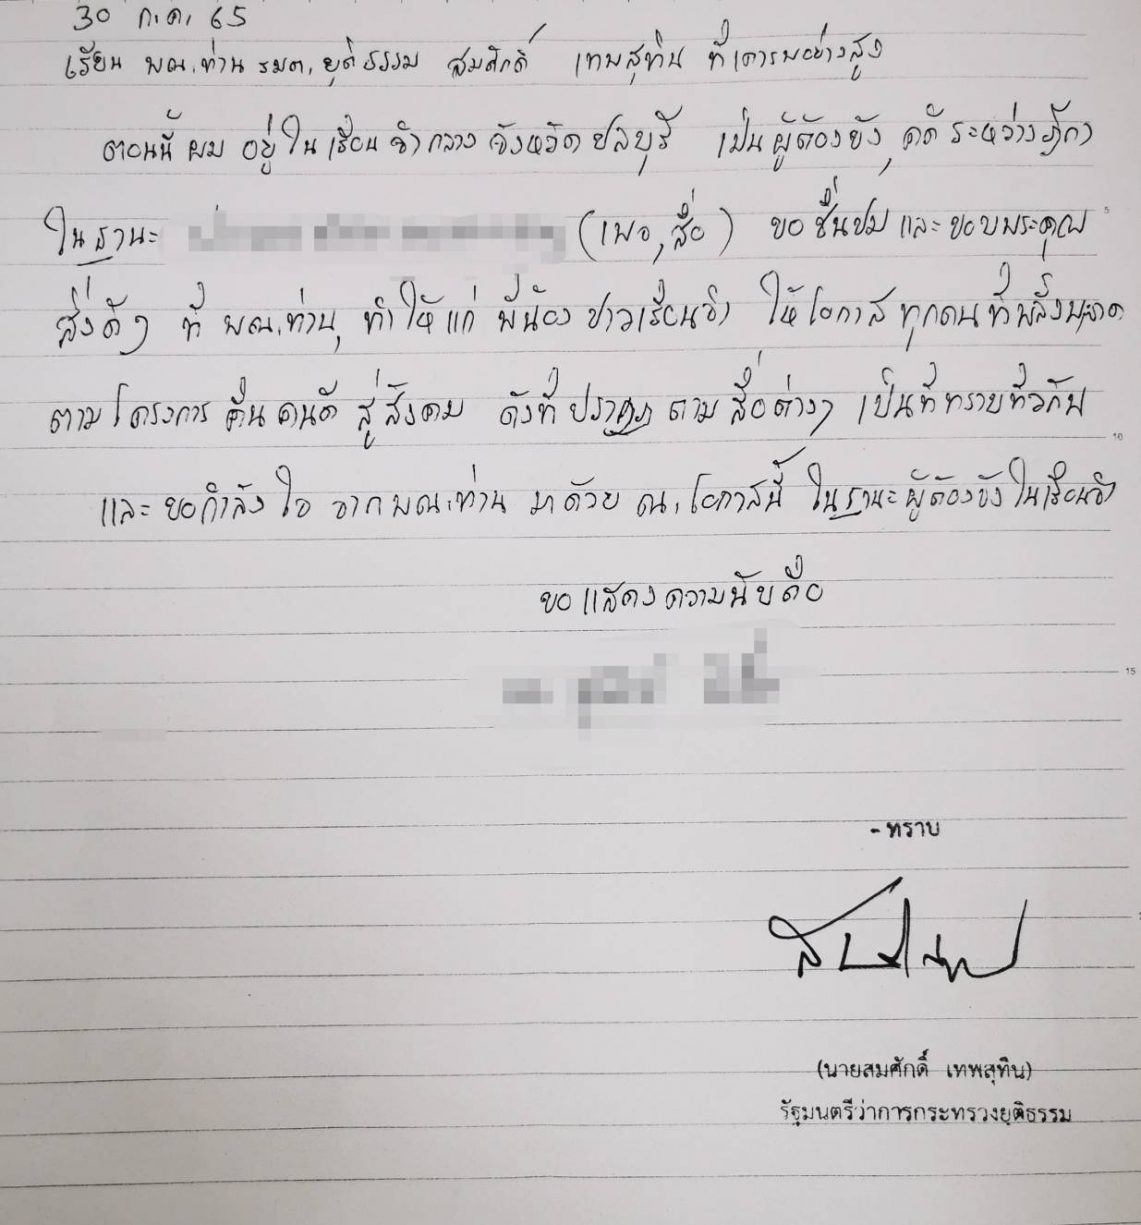 30 ก.ค. 65
เรียน พณ.ท่าน รมต.ยุติธรรม สมศักดิ์ เทพสุทิน ที่เคารพอย่างสูง
ตอนนี้ ผม อยู่ใน เรือนจำกลาง จังหวัด ชลบุรี เป็น ผู้ต้องขัง คดี ระหว่างฎีกา
ใน ฐานะ (เพจ,สื่อ) ขอ ชื่นชม และ ขอบพระคุณ
5
สิ่งดีๆ ที่ พณ.ท่าน ทำให้แก่ พี่น้อง ชาวเรือนจำ ให้โอกาส ทุกคน ที่พลั้งพลาด
ตาม โครงการ คืน คนดี สู่สังคม ดังที่ ปรากฏ ตาม สื่อต่างๆ เป็นที่ทราบทั่วกัน
10
และ ขอกำลังใจ จาก พณ.ท่าน มาด้วย ณ.โอกาสนี้ ในฐานะ ผู้ต้องขัง ในเรือนจำ
ขอแสดงความนับถือ
15
- ทราบ
(นายสมศักดิ์ เทพสุทิน)
รัฐมนตรีว่าการกระทรวงยุติธรรม